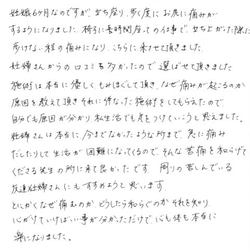 妊娠6ヶ月なのですが、立ち座り、歩く度にお尻に痛みが
するようになりました。特に長時間座っての仕事で、立ち上がった際に
歩けない程の痛みになり、こちらに来させて頂きました。
妊婦さんからの口コミも多かったので選ばせて頂きました
施術は本当に優しくもみほぐして頂き、なぜ痛みが起こるのか
原因を教えて頂きそれに伴なった施術をしてもらえたので
自分でも原因が分かり私生活でも気をつけていこうと思えました。
妊婦さんは本当に今までなかったような所まで急に痛み
だしたりして生活が困難になってくるので、そんな苦痛を和らげて
くださる先生の所に来て良かったです 周りの悩んでいる
友達妊婦さんにもすすめようと思います
とにかくなぜ痛むのか、どうしたら和らぐのか それを知り
心がけていけばいい事が分かっただけで心も体も本当に
楽になりました。